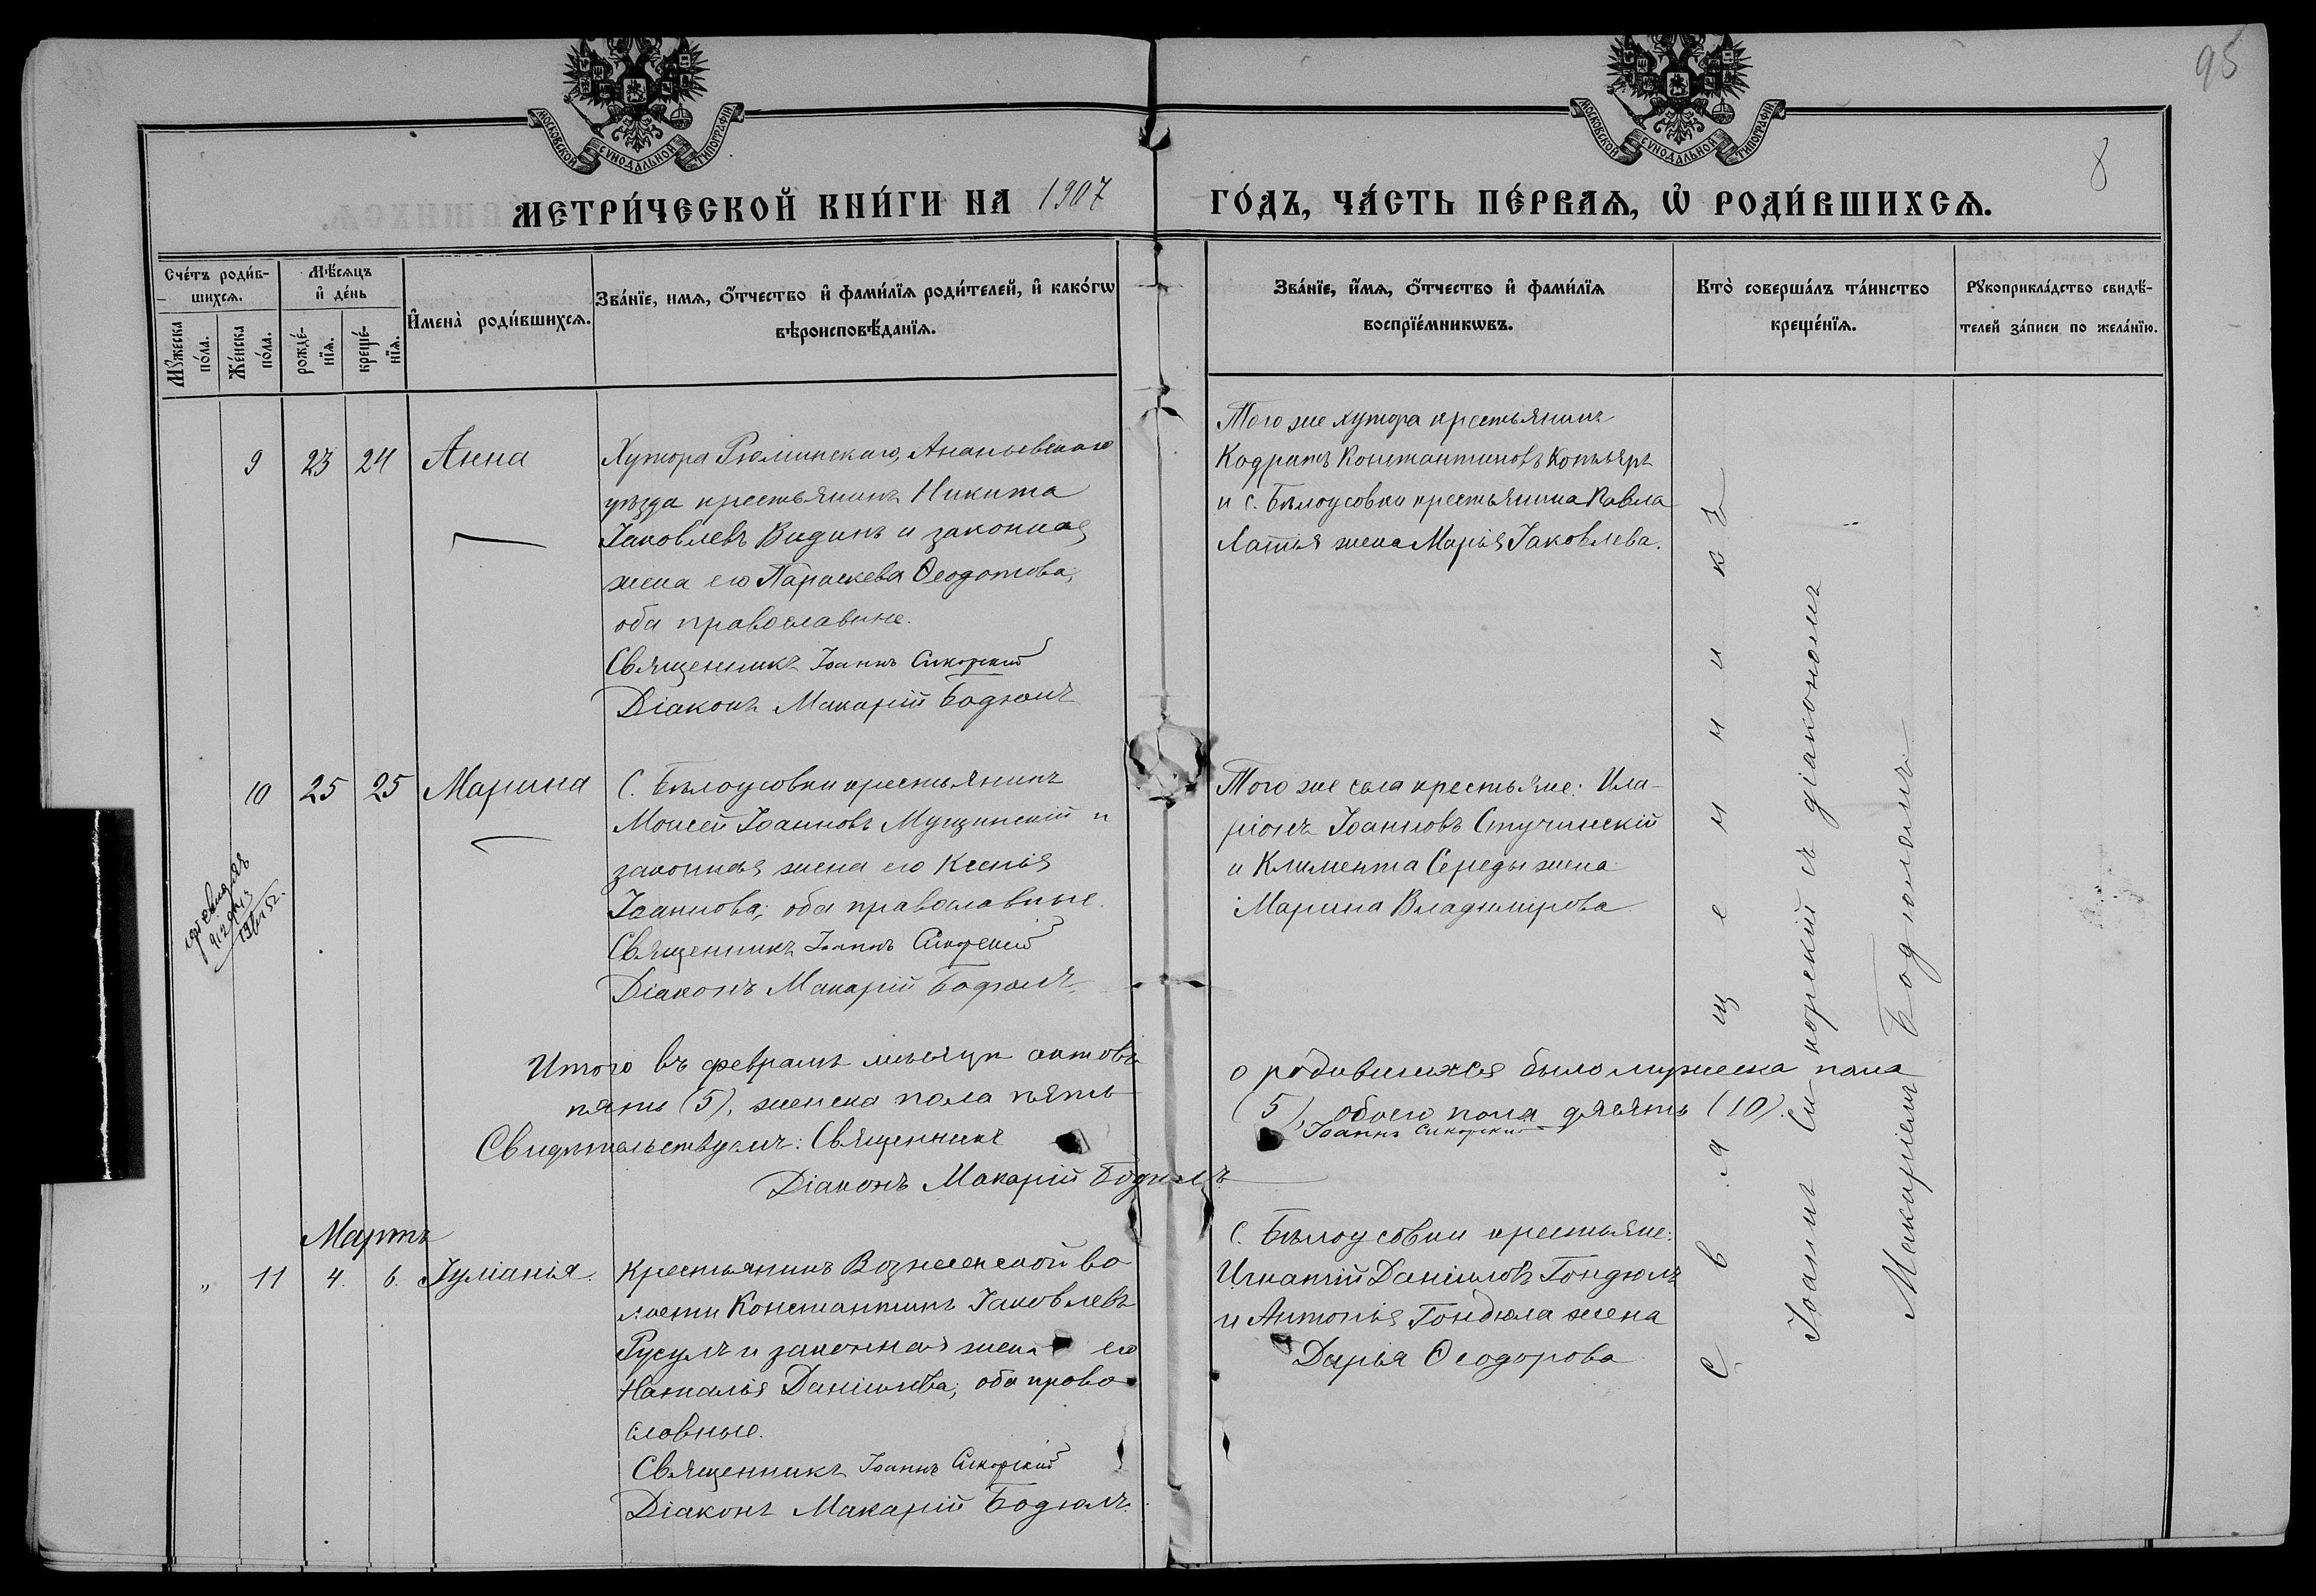 95
8
МОСКОВСКОЙ СѴНОДАЛЬНОЙ ТИПОГРАФІИ
МОСКОВСКОЙ СѴНОДАЛЬНОЙ ТИПОГРАФІИ
МЕТРИ́ЧЕСКОЙ КНИ́ГИ НА 1907 ГО́ДЪ, ЧА́СТЬ ПЕ́РВАѦ, Ѡ҆ РОДИ́ВШИХСѦ.
Сче́тъ роди́в-
шихсѧ.
Мꙋжеска по́ла.
Же́нска по́ла.
Мѣ́сѧцъ
и҆ де́нь
рожде́-
нїѧ.
креще́-
нїѧ.
И҆мена̀ роди́вшихсѧ.
Зва́нїе, имѧ, ѻ҆́тчество и҆ фами́лїѧ роди́телей, и҆ како́гѡ
вѣроисповѣ́данїѧ.
Зва́нїе, и҆́мѧ, ѻ҆́тчество и҆ фами́лїѧ
воспрїе́мникѡвъ.
Кто̀ соверша́лъ та́инство
креще́нїѧ.
Рꙋкоприкла́дство свидѣ́-
телей за́писи по жела́нїю.
9 23 24 Анна
Хутора Рюминскаго, Ананьевскаго
уѣзда крестьянинъ Никита
Іаковлевъ Видинъ и законная
жена его Параскева Ѳеодотова;
оба православные.
Священникъ Іоаннъ Сикорскій
Діаконъ Макарій Бодюлъ
Того же хутора крестьянинъ
Кодратъ Константиновъ
и с. Бѣлоусовки крестьянина Павла
жена Марія Іаковлева.
10 25 25 Марина
С. Бѣлоусовки крестьянинъ
Моисей Іоанновъ Мущинскій и
законная жена его Ксенія
Іоаннова; оба православные.
Священникъ Іоаннъ Сикорскій
Діаконъ Макарій Бодюлъ
Того же села крестьяне: Ила-
ріонъ Іоанновъ Стучинскій
и Климента Середы жена
Марина Владимірова
Итого въ февралѣ мѣсяцѣ актовъ о родившихся было мужеска пола
пять (5), женска пола пять (5), обоего пола десять (10).
Свидѣтельствуемъ: Священникъ Іоаннъ Сикорскій
Діаконъ Макарій Бодюлъ
Мартъ
" 11 4. 6. Іуліанія.
Крестьянинъ Вознесенской во
лости Константинъ Іаковлевъ
Русулъ и законная жена его
Наталія Даніилова; оба право
славные.
Священникъ Іоаннъ Сикорскій
Діаконъ Макарій Бодюлъ.
С. Бѣлоусовки крестьяне:
Игнатій Даніиловъ Гондюлъ
и Антонія Гондюла жена
Дарья Ѳеодорова
Священникъ
Іоаннъ Сикорскій съ діакономъ
Макаріемъ Бодюломъ